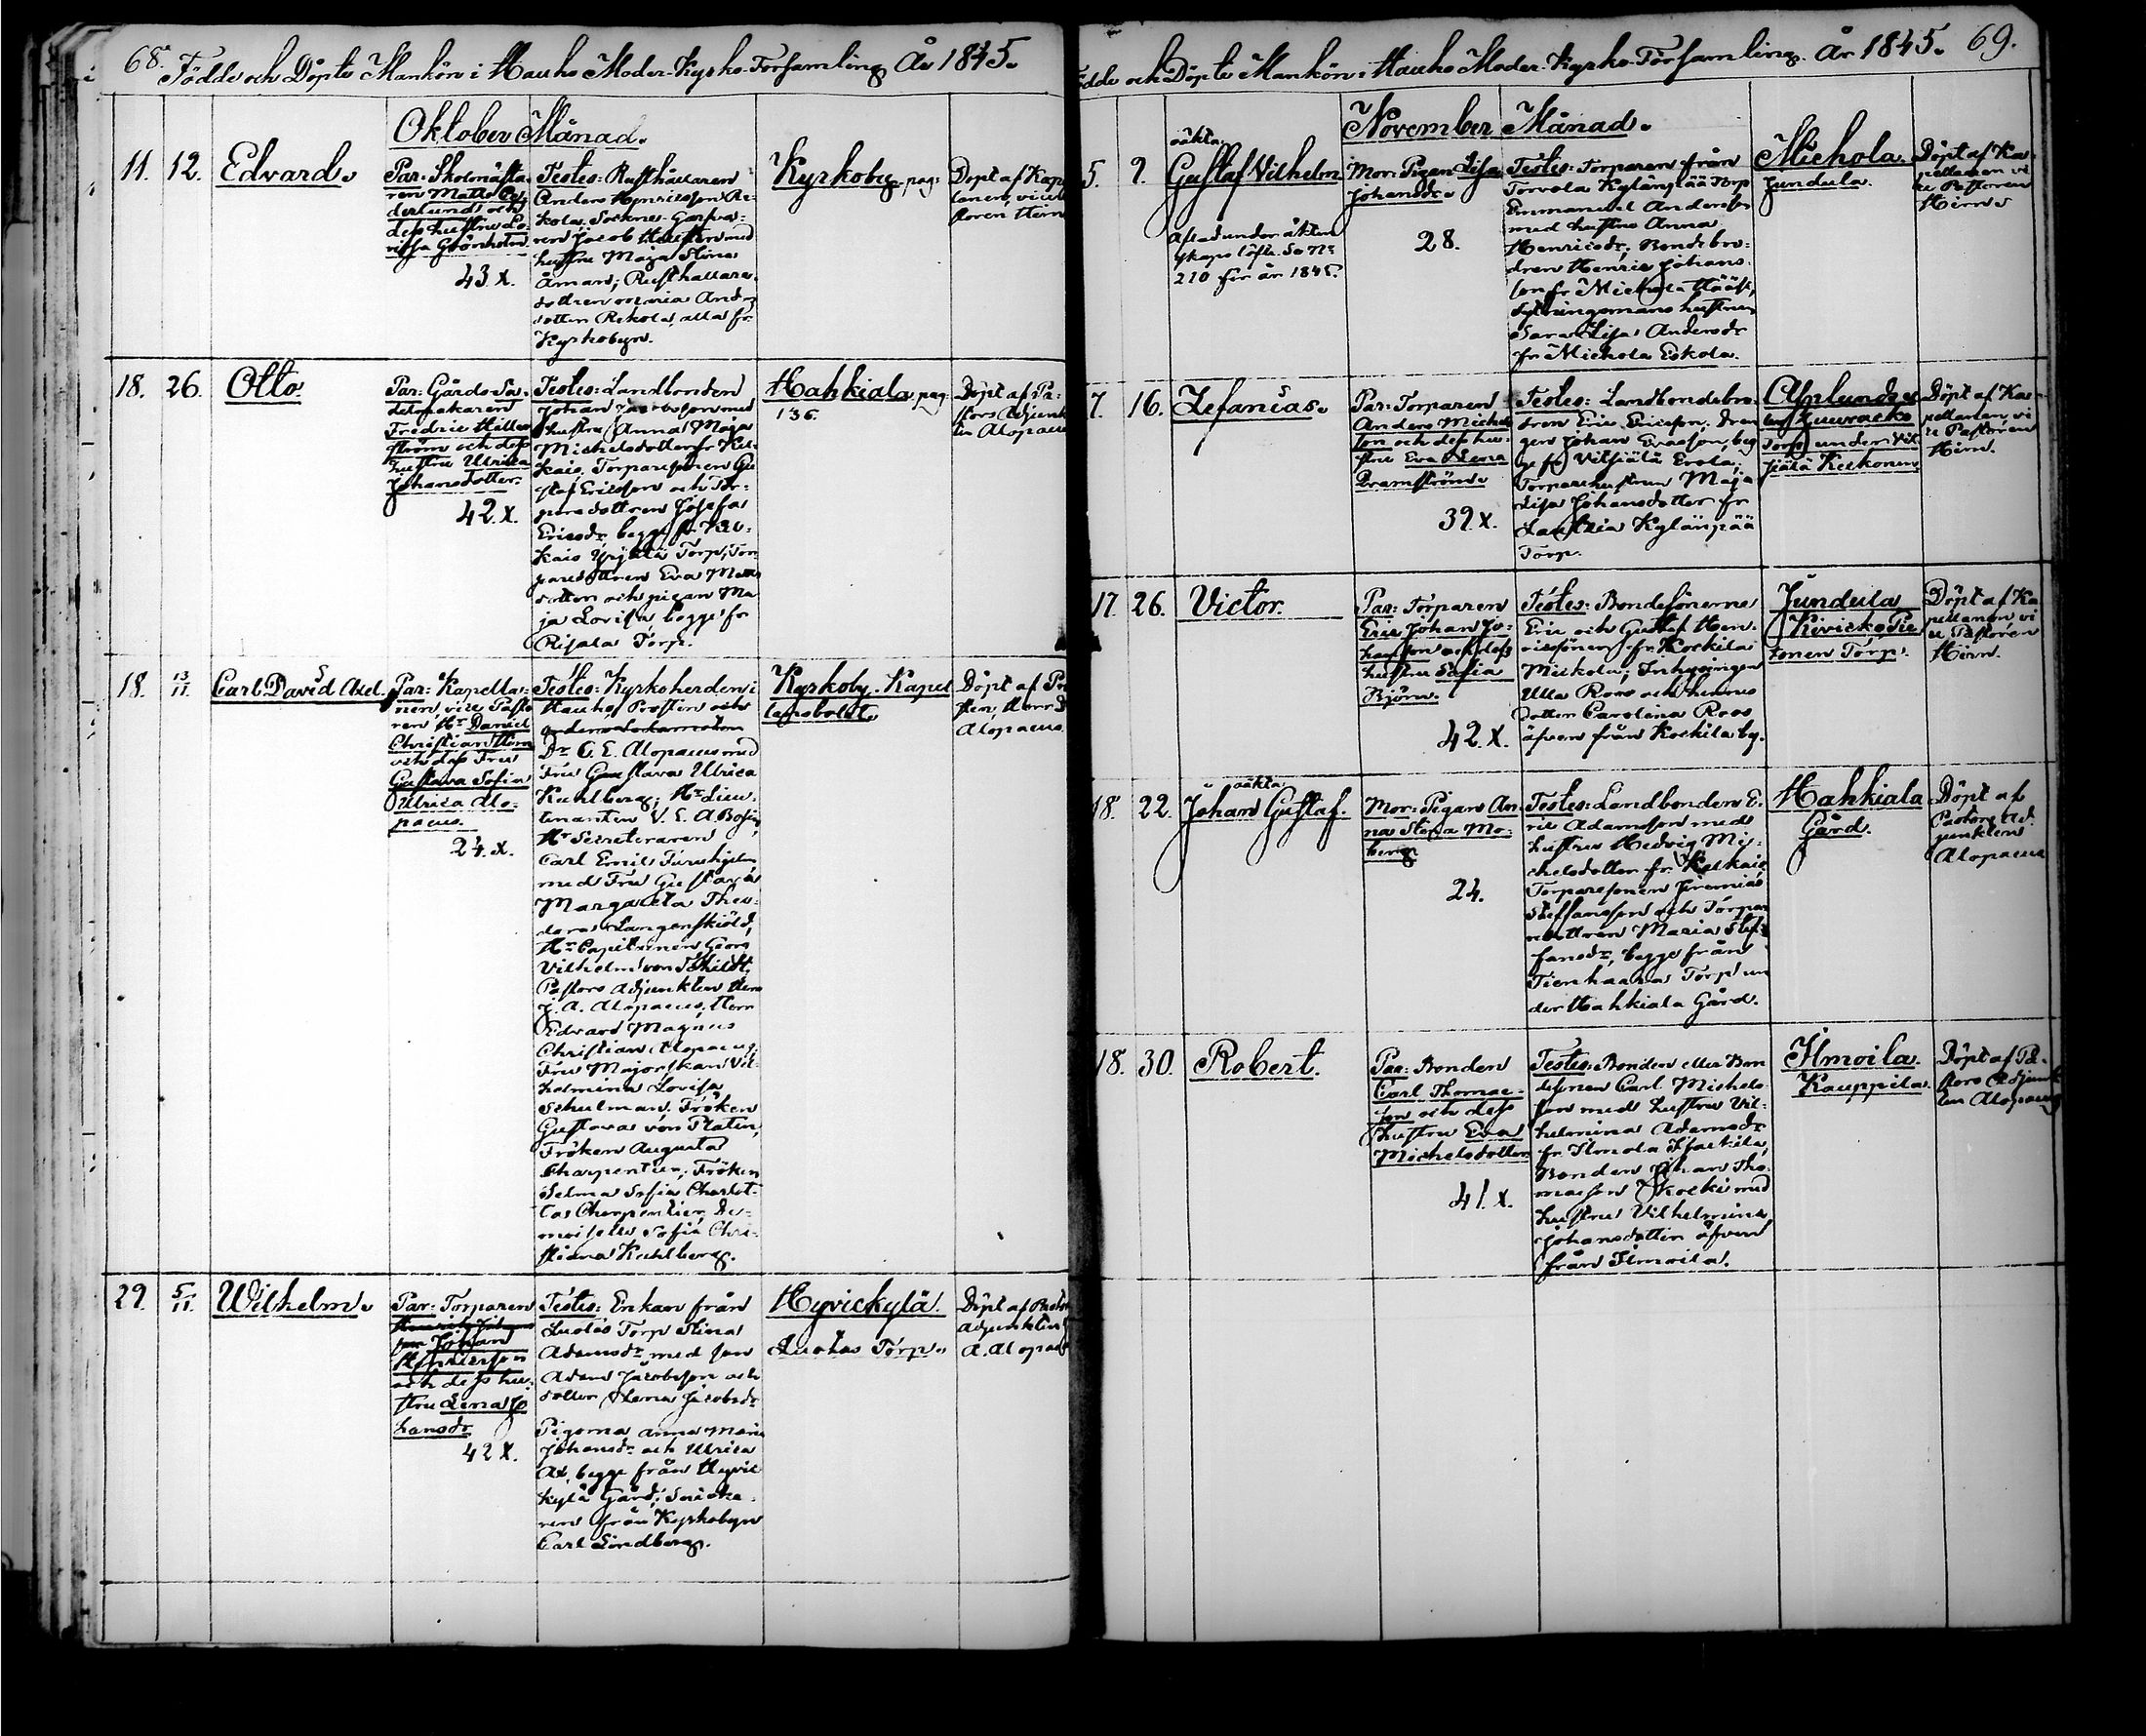 68. Födde och Döpte Mankön i Hauho Moder-Kyrko-Församling År 1845.
Oktober Månad.
11. 12. Edvard.
Par: Skolmästa-
ren Matts Ce-
derlund och
dess hustru Lo-
visa Grönholm.
43 x.
Testes: Rusthållaren
Anders Henricsson Re-
kola, Sockne-Garfva-
ren Jacob med
hustru Maja Stina
Åman; Rusthållare-
dottren Maria Anders-
dotter Rekola, alla fr.
Kyrkobyn.
Kyrkoby pag:
Döpt af Kapel-
lanen, vice Pa-
storen Hirn
18. 26. Otto.
Par: Gårds Sa-
delmakaren
Fredric Hillen-
ström och dess
hustru Ulrica
Johansdotter.
42. x.
Testes: Landbonden
Johan Jacobsson med
hustru Anna Maja
Michelsdotter fr. Kel-
kais, Torparesonen Gu-
staf Ericsson och Tor-
paredottren Josefa
Ericsdr, begge fr. Kel-
kais Yrjälä Torp; Tor-
paredottren Eva Matts-
dotter och pigan Ma-
ja Lovisa, begge fr
Risala Torp.
Hahkiala pag:
136.
Döpt af Pa-
stors Adjunk-
ten Alopaeus
18. 13/11. Carl David Axel.
Par: Kapella-
nen, vice Pasto-
ren Hr Daniel
Christian Hirn
och dess Fru
Gustava Sofia
Ulrica Alo-
paeus.
24. x.
Testes: Kyrkoherden i
Hauho, Prosten och
Dr C. E. Alopaeus med
Fru Gustava Ulrica
Kuhlberg; Hr Lieu-
tenanten V. E. A Bosin,
Hr Secreteraren
Carl Emil Furuhjelm
med Fru Gustava
Margareta Theo-
dora Langenskiöld,
Hr Capitainen Georg
Vilhelm von Schildt,
Pastors Adjunkten Herr
J. A. Alopaeus, Herr
Edvard Magnus
Christian Alopaeus,
Fru Majorskan Vil-
helmina Lovisa
Schulman, Fröken
Gustava von Platin,
Fröken Augusta
Charpentier, Fröken
Selma Sofia Charlot-
ta Charpentier, De-
moiselle Sofia Chri-
stiana Kuhlberg.
Kyrkoby. Kapel
lansbolet.
Döpt af Pro-
sten, Herr D
Alopaeus
29. 5/11. Wilhelm.
Par: Torparen
Johan
och dess hu-
stru Lena Jo
hansdr
42 x.
Testes: Enkan från
Luotas Torp Stina
Adamsdr med son
Adam Jacobsson och
dotter Lena Jacobsdr
Pigorna Anna Maria
Johansdr och Ulrica
Ax, begge från Hyvic
kylä Gård; Snicka-
ren från Kyrkobyn
Carl Lindberg.
Hyvickylä.
Luotas Torp.
Döpt af Pastors
Adjunkten
A. Alopaeus
Födde och Döpte Mankön i Hauho Moder-Kyrko-Församling. År 1845. 69.
November Månad.
oäkta
5. 9. Gustaf Vilhelm
Aflad under äkten
skaps löfte. Se No
210 för år 1845.
Mor: Pigan Lisa
Johansdr
28.
Testes: Torparen från
Torvola Kylänpää Torp
Emmanuel Andersson
med hustru Anna
Henricsdr; Bondebro-
dren Henric Johans-
son fr Miehola
Sytningsmans hustrun
Sara Lisa Andersdr
fr Miehola Eskola.
Miehola.
Jundula.
Döpt af Ka-
pellanen vi
ce Pastoren
Hirn
7. 16. Zefanias.
Par: Torparen
Anders Michels
son och dess hu-
stru Eva Lena
Bramström
39. x.
Testes: Landbondebro-
dren Eric Ericsson, Dren
gen Johan Ericsson, beg
ge fr Vitsiälä Erola;
Torparehustrun Maja
Lisa Johansdotter fr
Lautsia Kylänpää
Torp.
Asplund
Torp under Vit
siälä Keckonen
Döpt af Ka-
pellanen, vi
ce Pastoren
Hirn.
17 26. Victor.
Par: Torparen
Eric Johan Jo-
hansson och dess
hustru Sofia
Björn.
42. x.
Testes: Bondesönerne
Eric och Gustaf Hen-
ricssöner fr Kockila
Mickola; Inhysingen
Ulla Roos och hennes
Dotter Carolina Roos
äfven från Kockila by.
Jundula
Kivicko Pie
tonen Torp.
Döpt af Ka
pellanen vi
ce Pastoren
Hirn.
oäkta
18. 22. Johan Gustaf.
Mor: Pigan An-
na Stefa Mo-
berg
24.
Testes: Landbonden E-
ric Adamsson med
hustru Hedvig Mi-
chelsdotter fr. Kelkais;
Torparesonen Jeremias
Steffansson och Torpar
edottren Maria Stef-
fansdr, begge från
Tienhaara Torp un
der Hahkiala Gård.
Hahkiala
Gård.
Döpt af
Pastors Ad-
junkten
Alopaeus
18. 30. Robert.
Par: Bonden
Carl Thomas-
son och dess
hustru Eva
Michelsdotter
41. x.
Testes: Bonden eller Bon
desonen Carl Michels-
son med hustru Vil-
helmina Adamsdr
fr Ilmola
Bonden Johan Tho-
masson Skocki med
hustru Vilhelmina
Johansdotter äfven
från Ilmoila.
Ilmoila.
Kauppila.
Döpt af Pa-
stors Adjunk
ten Alopaeus